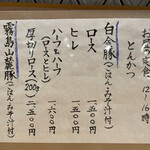 お昼の定食 12〜16時
とんかつ
白金豚(ごはん・みそ汁付)
ロース 一五〇〇円
ヒレ 一五〇〇円
ハーフ&ハーフ
(ロースとヒレ) 一六〇〇円
厚切りロース(200g) 二五〇〇円
霧島山麓豚(ごはん・みそ汁付)